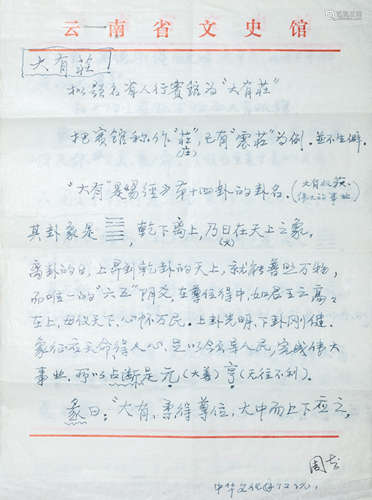 云南省文史馆
大有莊
拟题名有人行賓館为“大有莊”
把賓館称作“莊”,已有“震莊”为例。並不生僻。
庄
“大有”是易經第十四卦的卦名。(大有收获,
伟大的事业)
其卦象是 ,乾下离上,乃日在天上之象。
(火)
离卦的日,上昇卦乾卦的天上,就能普照万物,
而唯一的“六五”阴爻,在尊位得中,如君王之高高
在上,母仪天下,心怀万民。上卦光明,下卦刚健。
象征应天命得人心,足以令人民,完成伟大
事业。所以占断是元(大善)亨(无往不利)。
彖曰:“大有,柔得尊位,大中而上下应之,
周
中华文化